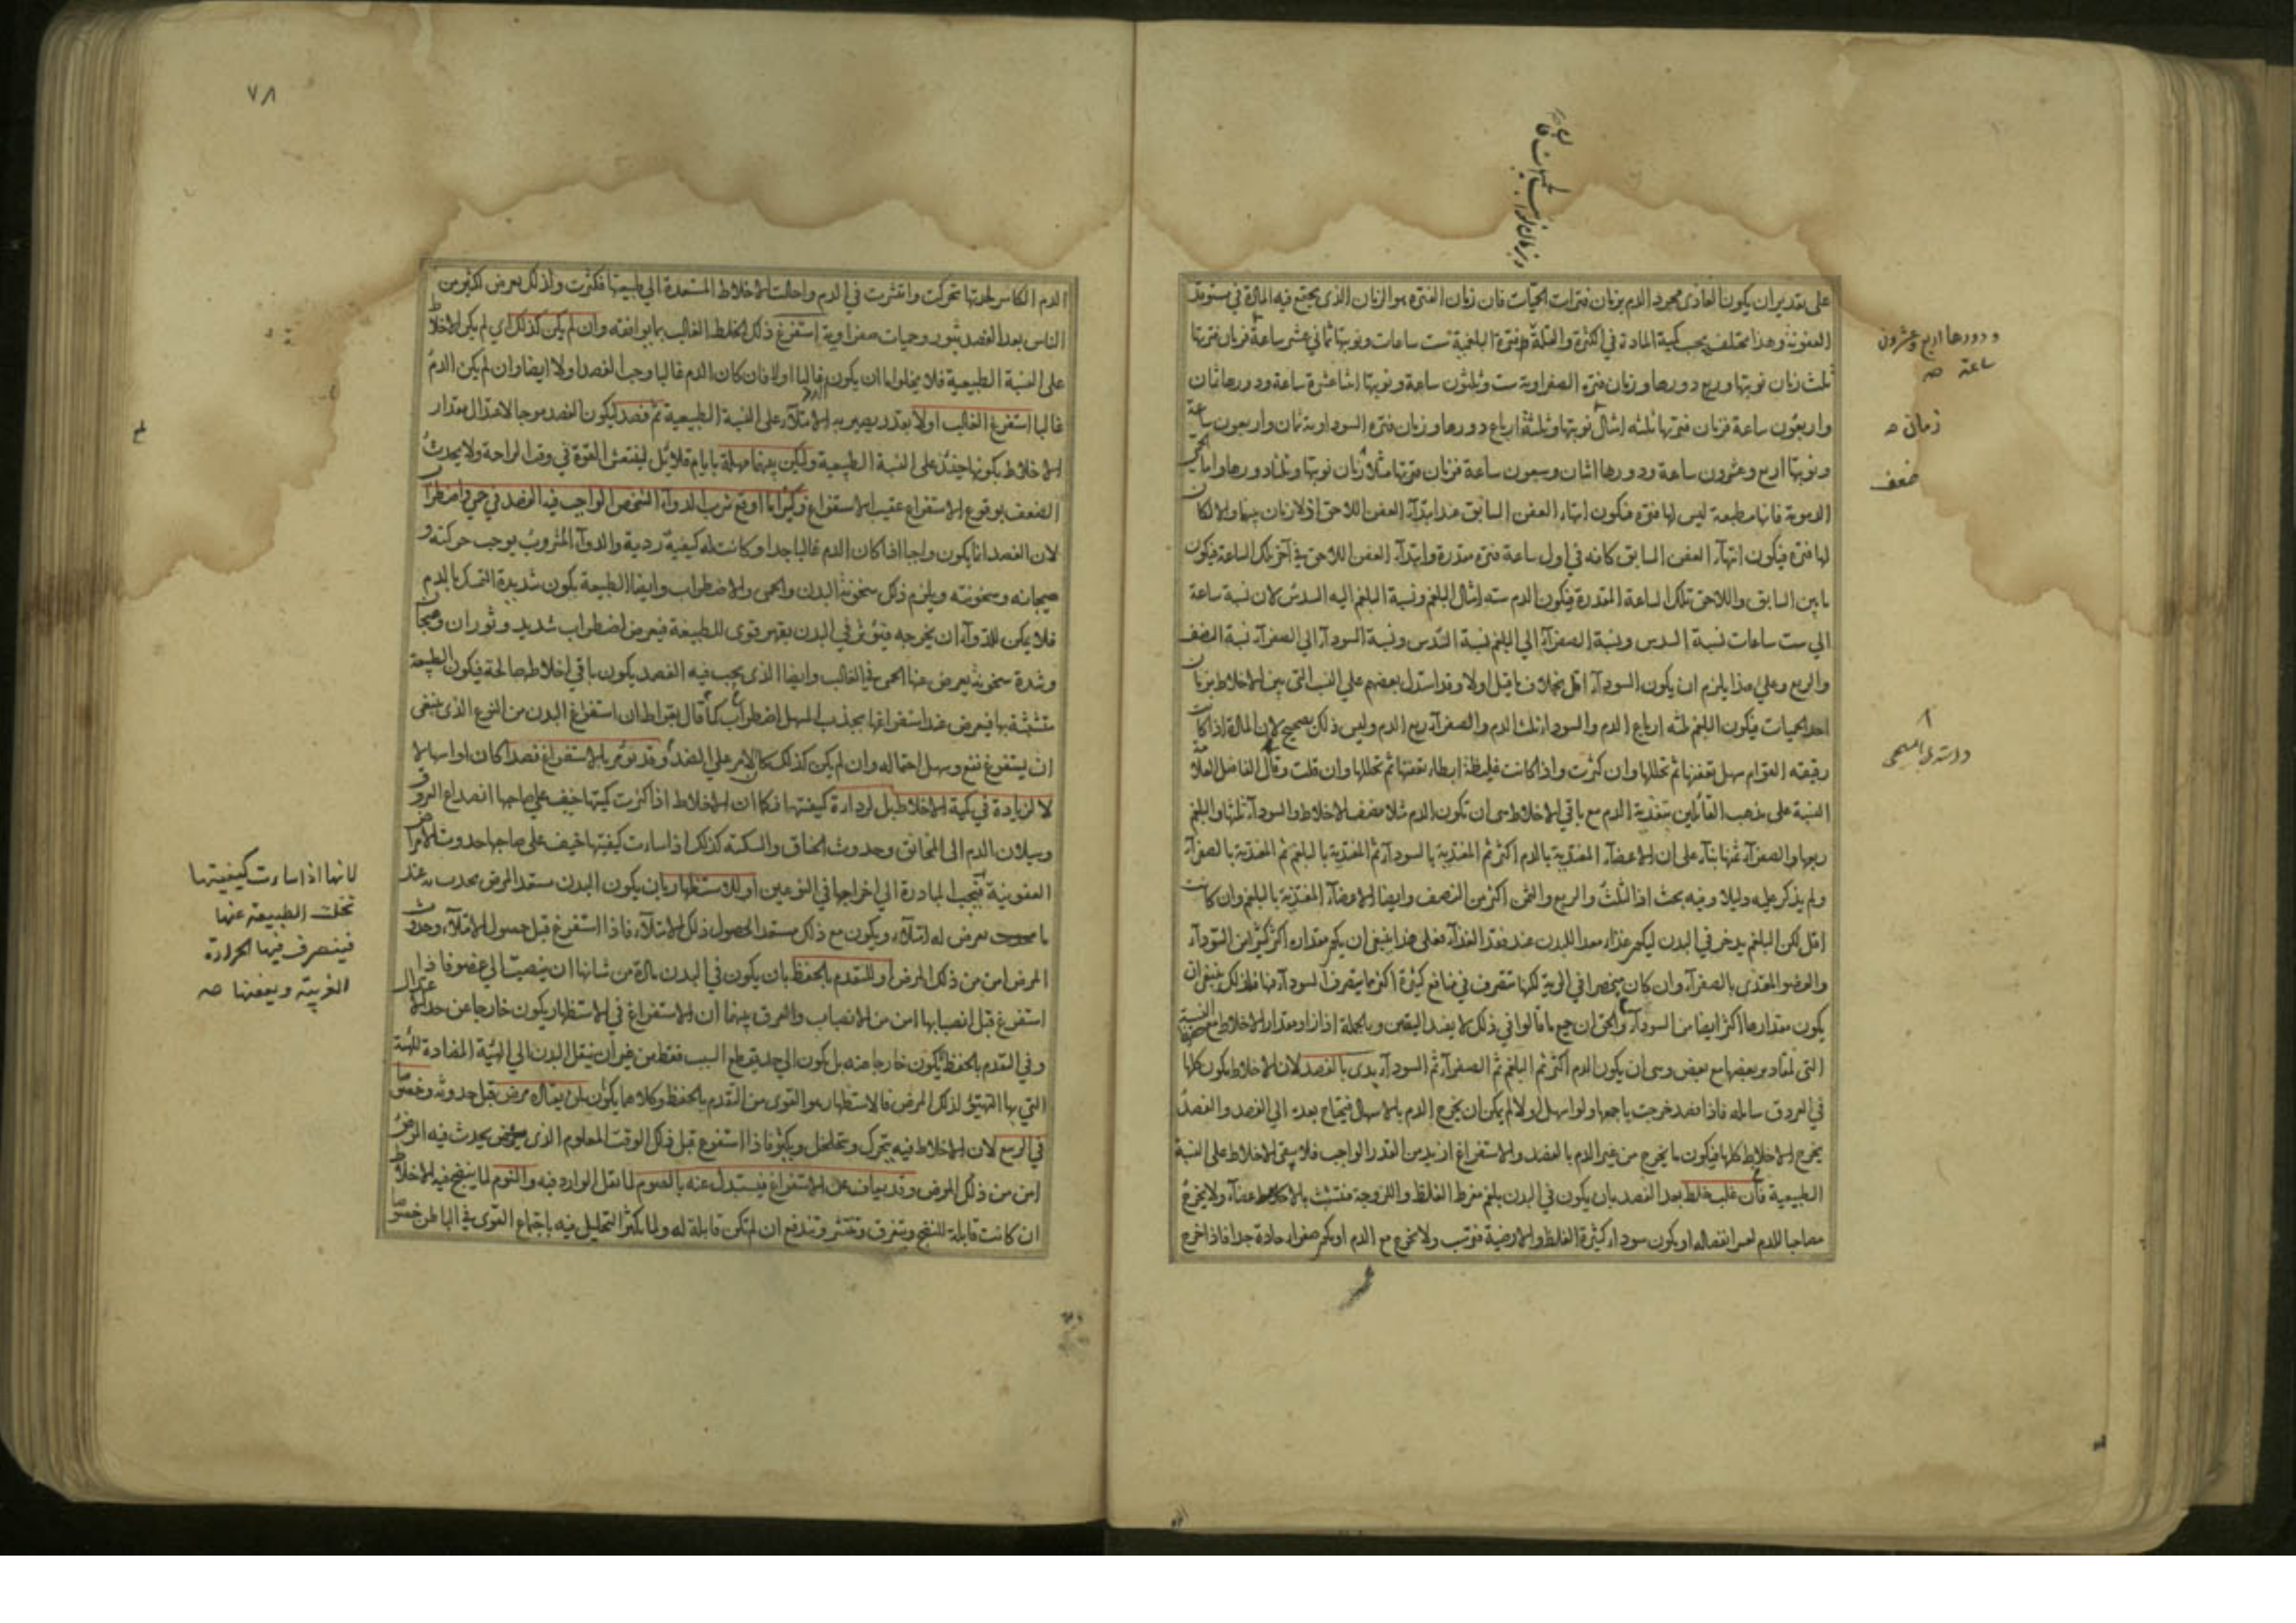 على تقدير ان يكون الغاذى مجرد الدم بزمان فترات الحميات فان زمان الفترة هو الزمان الذى يجتمع فيه المادة فى مستوقد
العفونة وهذا مختلف بحسب كمية المادة فى الكثرة والقلة ففترة البلغمية ست ساعات ونوبتها ثمانى عشر ساعة فزمان فترتها
ثلث زمان نوبتها وربع دورها وزمان فترة الصفراوية ست وثلثون ساعة ونوبتها اثنا عشرة ساعة ودورها ثمان
واربعون ساعة فزمان فترتها ثلثه امثال نوبتها وثلثة ارباع دورها وزمان فترة السوداوية ثمان واربعون ساعة
ونوبتها اربع وعشرون ساعة ودورها اثنان وسبعون ساعة فزمان فترتها مثلا زمان نوبتها وثلثا دورها واما الحمى
الدموية فانها مطبقة ليس لها فترة فيكون انتهاء العفن السابق عند ابتدآء العفن اللاحق اذ لا زمان بينهما والا لكان
لها فترة فيكون انتهآء العفن السابق كانه فى اول ساعة فترة مقدرة وابتدآء العفن اللاحق فى آخر تلك الساعة فيكون
ما بين السابق واللاحق تلك الساعة المقدرة فيكون الدم سته امثال البلغم ونسبة البلغم اليه السدس لان نسبة ساعة
الى ست ساعات نسبة السدس ونسبة الصفرآء الى البلغم نسبة السدس ونسبة السودآء الى الصفرآء نسبة النصف
والربع وعلى هذا يلزم ان يكون السودآء اقل بخلاف ما قيل اولا وقد استدل بعضهم على النسب التى بين الاخلاط بزمان
احد الحميات فيكون البلغم ثلثه ارباع الدم والسودا ثلث الدم والصفرآء ربع الدم وليس ذلك بصحيح لان المادة اذا كانت
رقيقه القوام سهل تعفنها ثم تحللها وان كثرت واذا كانت غليظة ابطاء تعفنها ثم تحللها وان قلت وقال الفاضل العلامة
النسبة على مذهب القائلين بتغذية الدم مع باقى الاخلاط هى ان تكون الدم مثلا ضعف الاخلاط والسودآء ثلثها والبلغم
ربعها والصفرآء ثمنها بنآء على ان الاعضآء المغتذية بالدم اكثر ثم المغتذية بالسودآء ثم المغتذية بالبلغم ثم المغتذية بالصفرآء
ولم يذكر عليه دليلا وفيه بحث اذ الثلث والربع والثمن اكثر من النصف وايضا الاعضآء المغتذية بالبلغم وان كانت
اقل لكن البلغم يدخر فى البدن ليكون غذاء معدا للبدن عند فقد الغذآء فعلى هذا ينبغى ان يكون مقداره اكثر كثيرا من السودآء
والعضو المغتذى بالصفرآء وان كان منحصرا فى الرية لكنها تتصرف فى منافع كثيرة اكثر مما يتصرف السودآء فيها فلذلك ينبغى ان
يكون مقدارها اكثر ايضا من السودآء والحق ان جميع ما قالوا فى ذلك لا يفيد اليقين وبالجملة اذا زاد مقدار الاخلاط مع حفظ النسبة
التى لمقادير بعضها مع بعض وهى ان يكون الدم اكثر ثم البلغم ثم الصفرآء ثم السودآء يدى بالفصد لان الاخلاط يكون كلها
فى العروق سالمه فاذا فصد خرجت باجمعها ولو اسهل اولا لم يكن ان يخرج الدم بالاسهال فيحتاج بعده الى الفصد والفصد
يخرج الاخلاط كلها فيكون ما يخرج من غير الدم بالفصد والاستفراغ ازيد من القدر الواجب فلا يبقى الاخلاط على النسبة
الطبيعية فان غلب خلط بعد الفصد بان يكون فى البدن بلغم مفرط الغلظ واللزوجة متشبث بالاعضآء ولا يخرج
مصاحبا للدم لعسر انفصاله او يكون سوداء كثيرة الغلظ والارضية فترسب ولا تخرج مع الدم او يكون صفراء حادة جدا فاذا خرج
ودورها اربع وعشرون
ساعة صح
زمان صح
ضعف
٧٨
الدم الكاسر لحدتها تحركت وانتشرت فى الدم واحالت الاخلاط المستعدة الى طبيعتها فكثرت ولذلك يعرض لكثير من
الناس بعد الفصد بثور وحميات صفراوية استفرغ ذلك الخلط الغالب بما يوافقه وان لم يكن كذلك اى لم يكن الاخلاط
على النسبة الطبيعية فلا يخلو اما ان يكون الدم غالبا اولا فان كان الدم غالبا وجب الفصد اولا ايضا وان لم يكن الدم
غالبا استفرغ الغالب اولا بقدر يصير به الامتلآء على النسبة الطبيعية ثم فصد ليكون الفصد موجبا لاعتدال مقدار
الاخلاط بكونها حينئذ على النسبة الطبيعية وليكن بينهما مهلة بايام قلائل لينتعش القوة فى وقت الراحة ولا يحدث
الضعف بوقوع الاستفراغ عقيب الاستفراغ وكثيرا ما اوقع شرب الدوآء الشخص الواجب فيه الفصد فى حمى واضطراب
لان الفصد انما يكون واجبا اذا كان الدم غالبا جدا او كانت له كيفية ردية والدوآء المشروب يوجب حركته و
هيجانه وسخونته ويلزم ذلك سخونة البدن والحمى والاضطراب وايضا الطبيعة يكون شديدة التمسك بالدم
فلا يمكن للدوآء ان يخرجه فيؤثر فى البدن بقهر قوى للطبيعة فيعرض اضطراب شديد وثوران وهيجان
وشدة سخونة يعرض عنها الحمى فى الغالب وايضا الذى يجب فيه الفصد يكون باقى اخلاطه صالحة فيكون الطبيعة
متشبثة بها فيعرض عند استفراغها بجذب المسهل اضطراب كما قال بقراط ان استفراغ البدن من النوع الذى ينبغى
ان يستفرغ نفع وسهل احتماله وان لم يكن كذلك كان الامر على الضد وقد يؤمر بالاستفراغ فصدا كان او اسهالا
لا لزيادة فى كمية الاخلاط بل لردآءة كيفيتها فكما ان الاخلاط اذا كثرت كميتها خيف على صاحبها انصداع العروق
وسيلان الدم الى المخانق وحدوث الخناق والسكتة كذلك اذا ساءت كيفيتها خيف على صاحبها حدوث الامراض
العفونية فيجب المبادرة الى اخراجها فى النوعين او للاستظهار بان يكون البدن مستعد المرض يحدث به عند
ما يعرض له امتلآء ويكون مع ذلك مستعد الحصول ذلك الامتلآء فاذا استفرغ قبل حصول الامتلآء وحدوث
المرض امن من ذلك المرض او للتقدم بالحفظ بان يكون فى البدن مادة من شانها ان ينصب الى عضو فاذا
استفرغ قبل انصبابها امن من الانصباب والفرق بينهما ان الاستفراغ فى الاستظهار يكون خارجا عن حد الاعتدال
وفى التقدم بالحفظ لا يكون خارجا عنه بل يكون الى حد يقطع السبب فقط من غير ان ينقل البدن الى الهيئة المضادة للهيئة
التى بها التهيؤ لذلك المرض فالاستظهار هو القوى من التقدم بالحفظ وكلاهما يكون لمن يعتاده مرض قبل حدوثه وخصوصا
فى الربيع لان الاخلاط فيه يتحرك وتتخلخل ويكثر فاذا استفرغ قبل ذلك الوقت المعلوم الذى يحدث فيه المرض
امن من ذلك المرض وقد يعاف عن الاستفراغ فيستبدل عنه بالصوم لما تقل الوارد فيه والنوم لما ينضج فيه الاخلاط
ان كانت قابلة للنضج ويتفرق وتنتشر وتندفع ان لم تكن قابلة له ولما يكثر التحليل فيه باجتماع القوى فى الباطن خصوصا
لانها اذا ساءت كيفيتها
تخلت الطبيعة عنها
فيتصرف فيها الحرارة
الغريبة ويعفنها صح